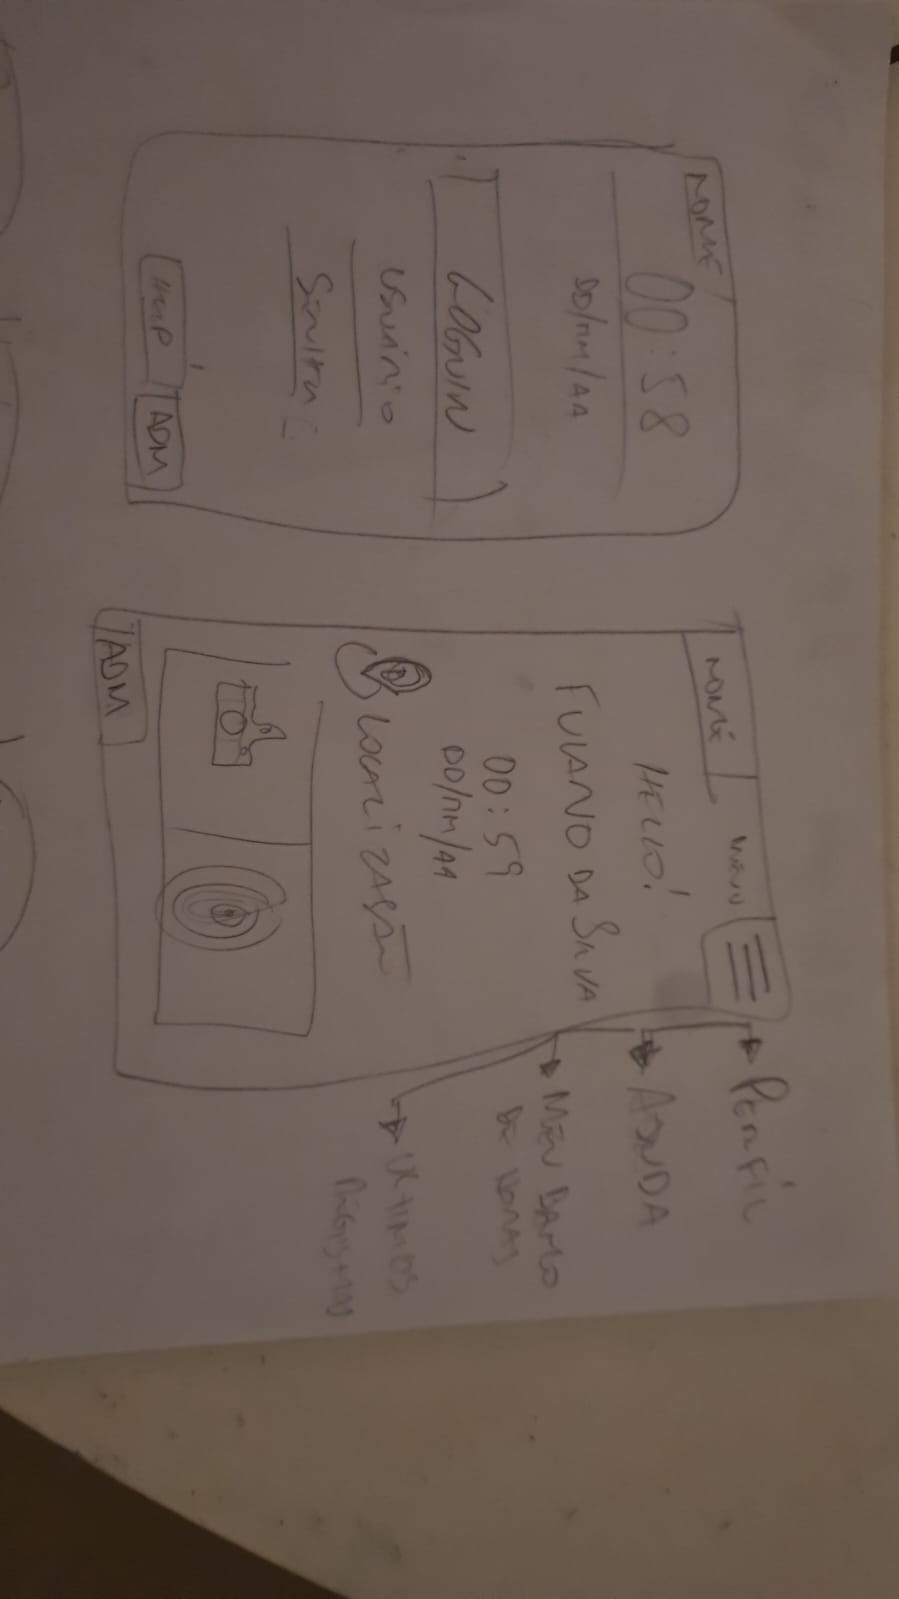 NOME
00:58
DD/MM/AA
LOGUIN
USUÁRIO
SENHA
HELP
ADM
NOME
MENU
HELLO!
FULANO DA SILVA
00:59
DD/MM/AA
LOCALIZAÇÃO
ADM
PERFIL
MEU BANCO
DE HORAS
ULTIMOS
REGISTRO